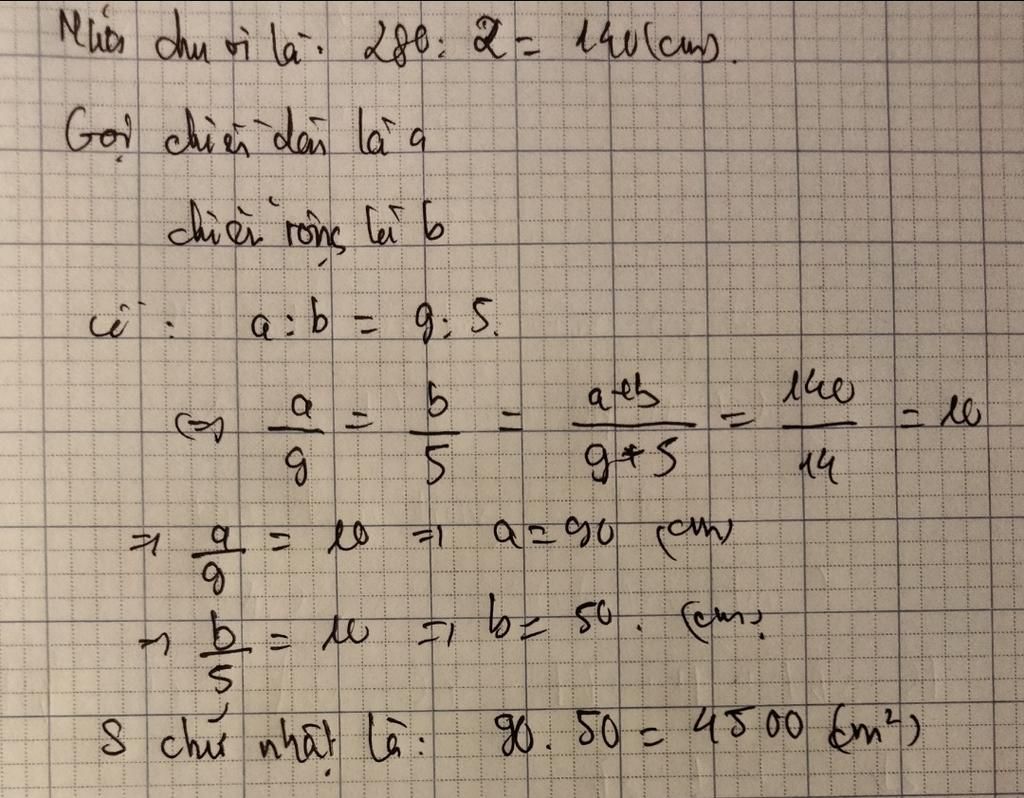 Nửa chu vi là: 280 : 2 = 140 (cm).
Gọi chiều dài là a
chiều rộng là b
có : a : b = 9 : 5.
<=> a/9 = b/5 = a+b/9+5 = 140/14 = 10
=> a/9 = 10 => a = 90 (cm)
=> b/5 = 10 => b = 50. (cm).
S chữ nhật là: 90. 50 = 4500 (cm²)